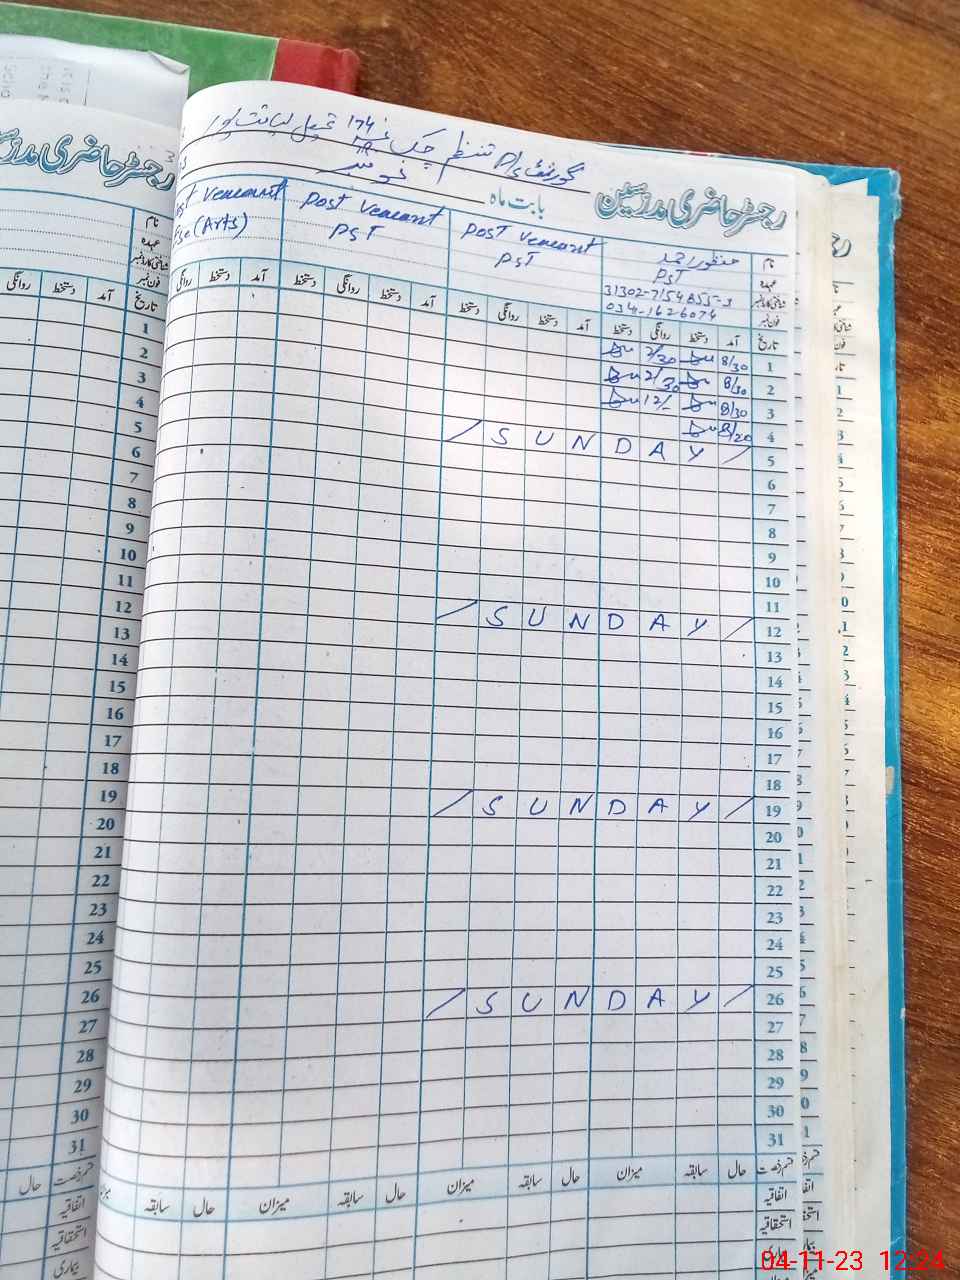 رجسٹر حاضری مدرسین
گورنمنٹ P/S تنظیم چک نمبر 174 تحصیل لیاقت پور
بابت ماہ
نام
عہدہ
شناختی کارڈ نمبر
فون نمبر
منظور احمد
PST
Post Veacant
PST
Post Veacant
PST
Post Veacant
Ese (Arts)
تاریخ آمد دستخط روانگی دستخط آمد دستخط روانگی دستخط آمد دستخط روانگی دستخط آمد دستخط روانگی
1 8/30 2/30
2 8/30 2/30
3 8/30 12/-
4 8/20
5 / S U N D A Y /
6
7
8
9
10
11
12 / S U N D A Y /
13
14
15
16
17
18
19 / S U N D A Y /
20
21
22
23
24
25
26 / S U N D A Y /
27
28
29
30
31
قسم رخصت حال سابقہ میزان حال سابقہ میزان حال سابقہ میزان حال سابقہ
اتفاقیہ
استحقاقیہ
بیماری
رجسٹر حاضری
نام
عہدہ
شناختی کارڈ نمبر
فون نمبر
تاریخ آمد دستخط روانگی
1
2
3
4
5
6
7
8
9
10
11
12
13
14
15
16
17
18
19
20
21
22
23
24
25
26
27
28
29
30
31
قسم رخصت حال
اتفاقیہ
استحقاقیہ
بیماری
04-11-23 12:24